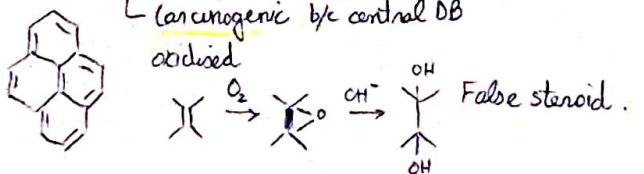 Carcinogenic b/c central DB
oxidised
O₂ O OH⁻ OH False steroid.
OH